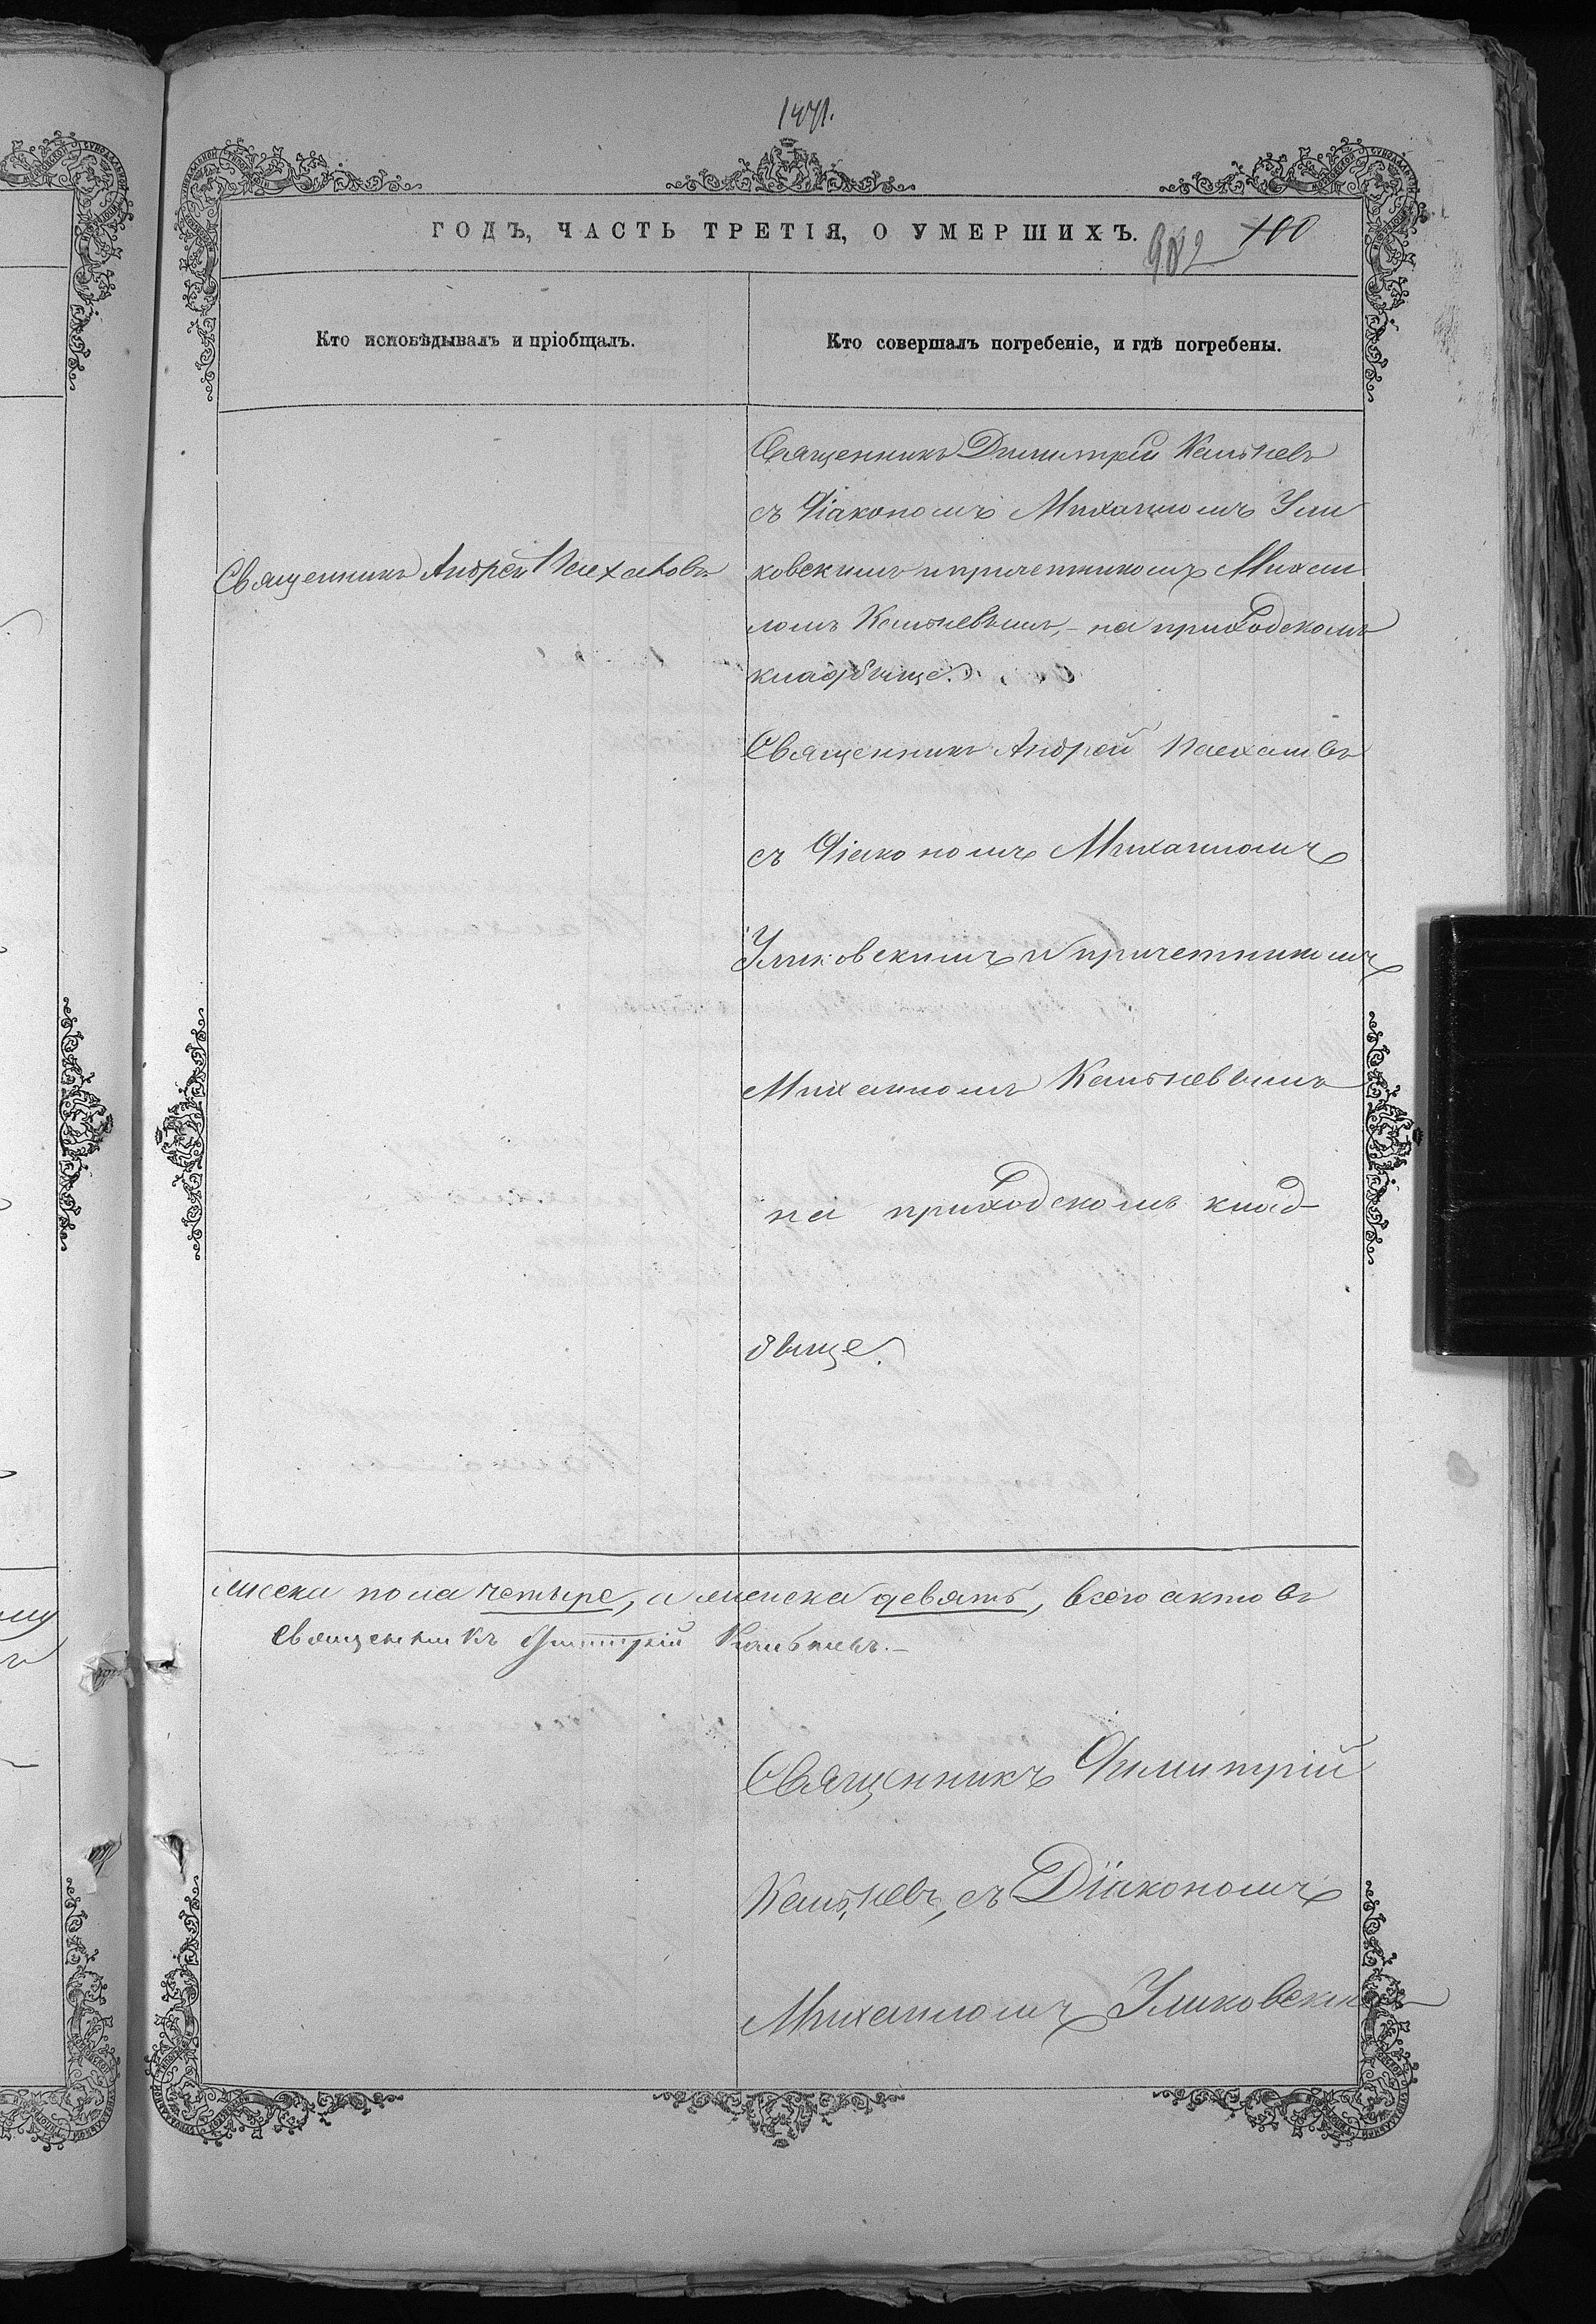 1471.
ГОДЪ, ЧАСТЬ ТРЕТІЯ, О УМЕРШИХЪ.
982 100
Кто исповѣдывалъ и пріобщалъ.
Кто совершалъ погребеніе, и гдѣ погребены.
Священникъ Димитрій Кальневъ
съ Діакономъ Михаиломъ Ули
Священникъ Андрей
ковскимъ и причетникомъ Михаи
ломъ Кальневымъ, - на приходскомъ
кладбище.
Священникъ Андрей
съ Діакономъ Михаиломъ
Уликовскимъ и причетникомъ
Михаиломъ Кальневымъ
на приходскомъ клад-
бище.
мужеска пола четыре, а женска девять, всего актовъ
Священникъ Димитрій Кальневъ.-
Священникъ Димитрій
Кальневъ, съ Діакономъ
Михаиломъ Уликовскимъ